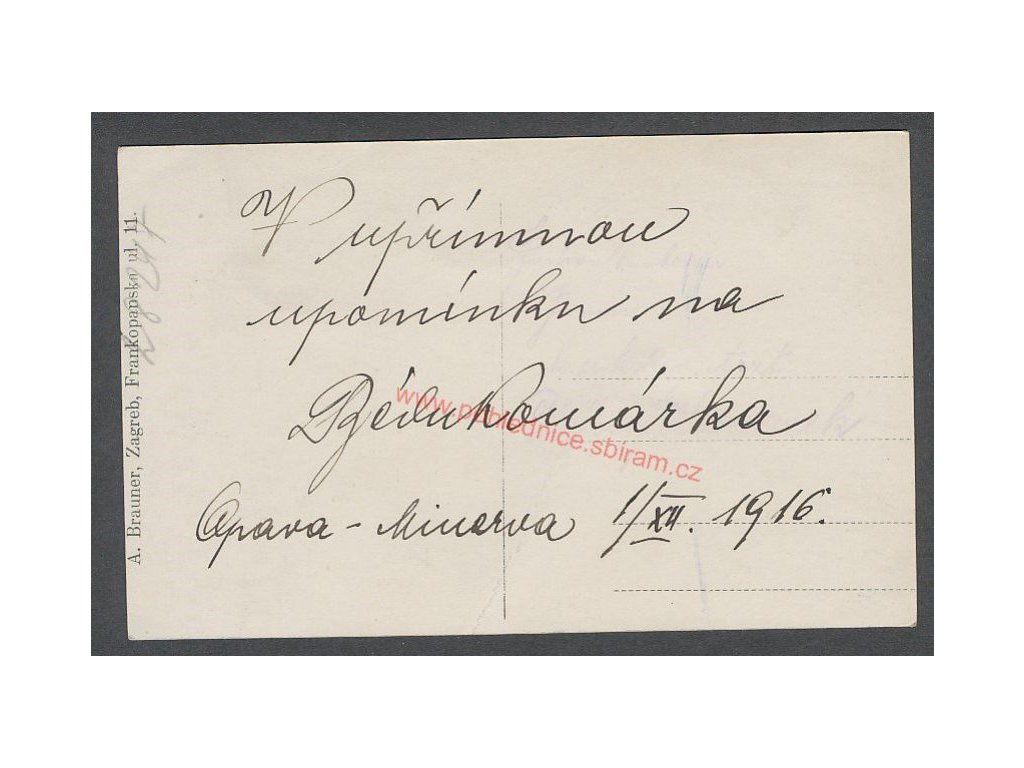 V upřímnou
upomínku na
Komárka
Opava - Minerva 1/XII. 1916.
A. Brauner, Zagreb, Frankopanska ul. 11.
www.pohlednice.sbiram.cz